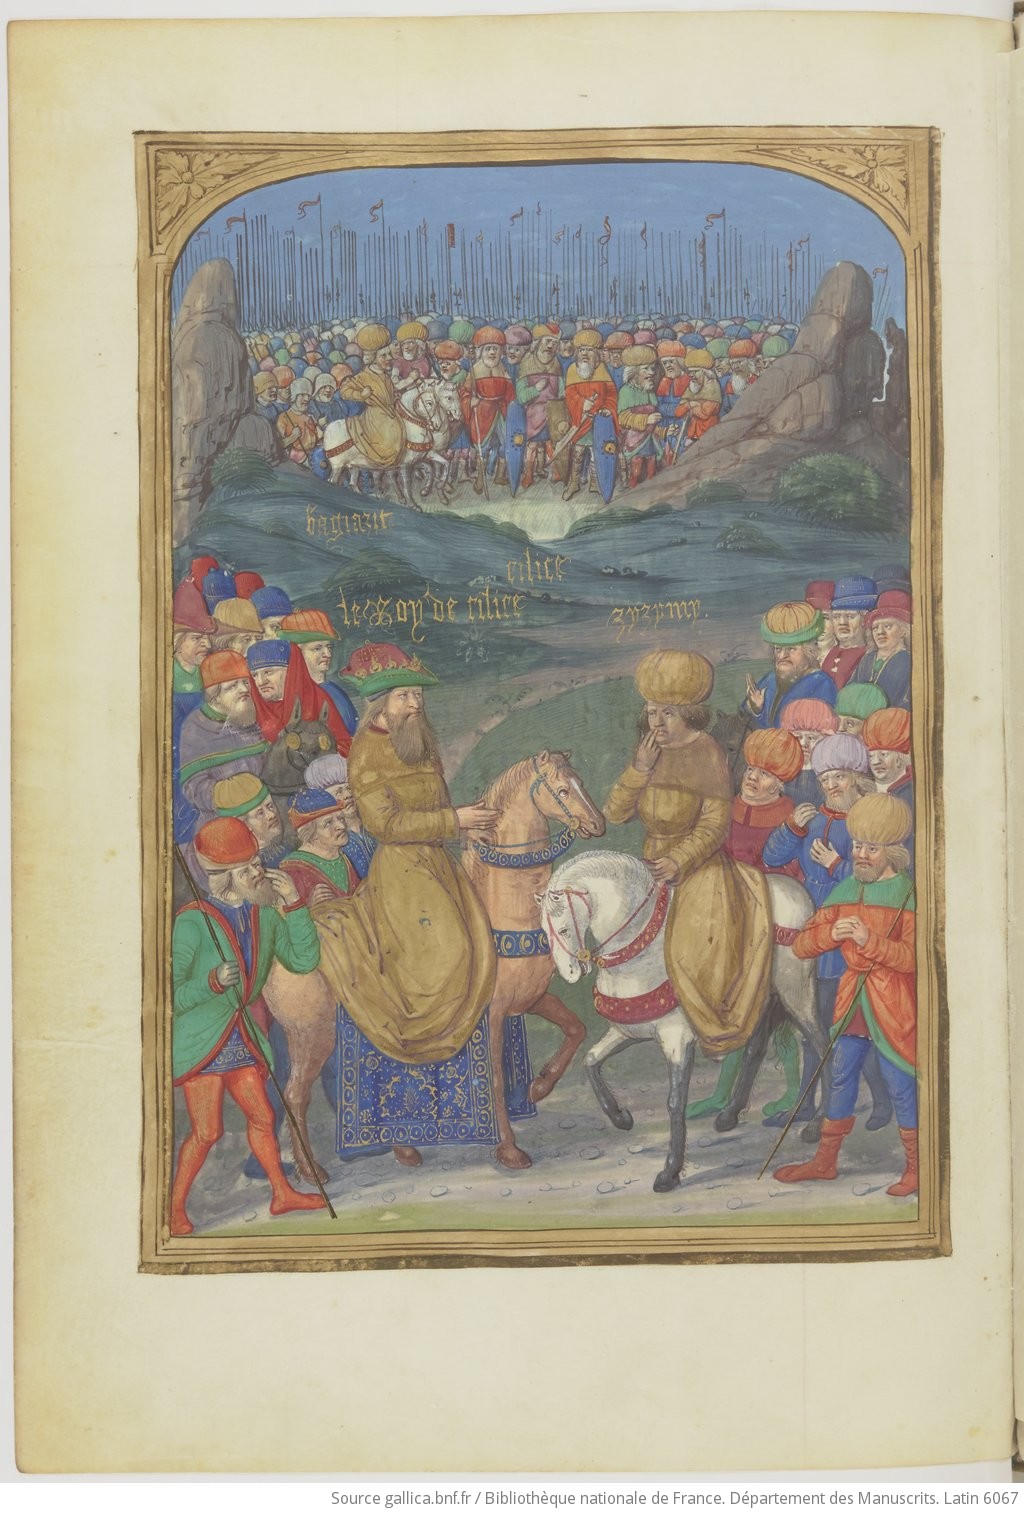 bagiazit
cilice
le Roy de cilice
zyzymy.
Source gallica.bnf.fr / Bibliothèque nationale de France. Département des Manuscrits. Latin 6067